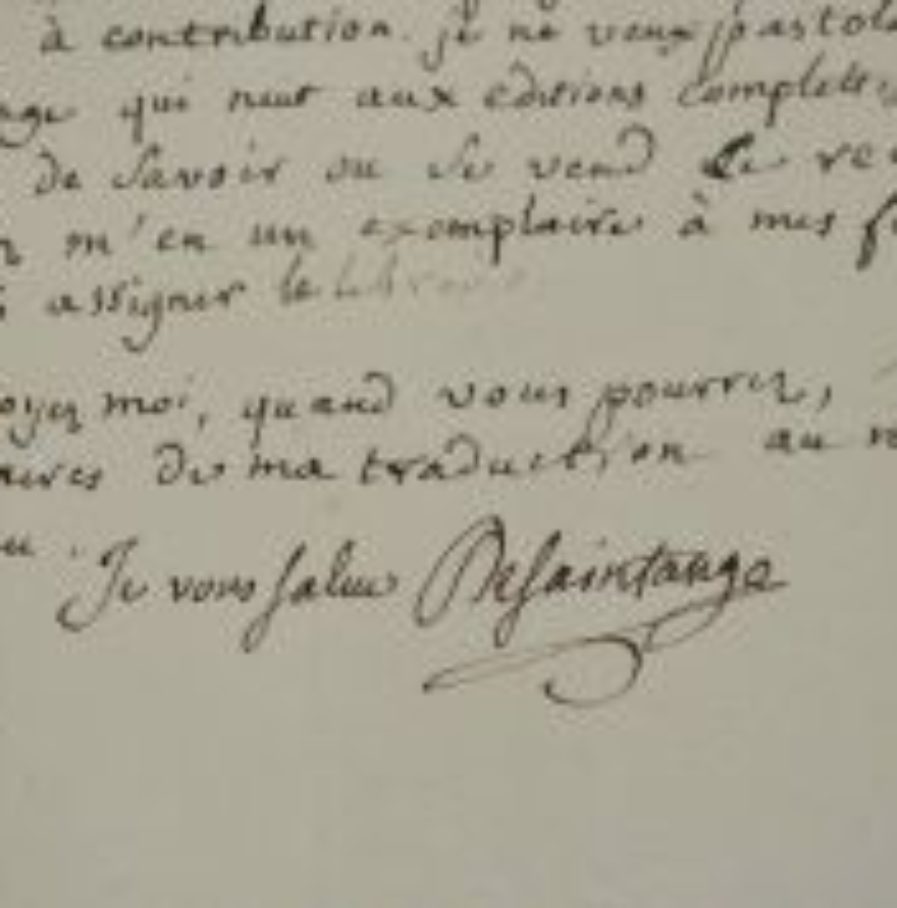 à contribution. je ne veux pas tolé
age qui nuit aux editions complettes
de savoir ou se vend le re
m'en un exemplaire à mes f
assigner le libraire
oyez moi, quand vous pourrez,
aires de ma traduction au
Je vous salue DeSaintange